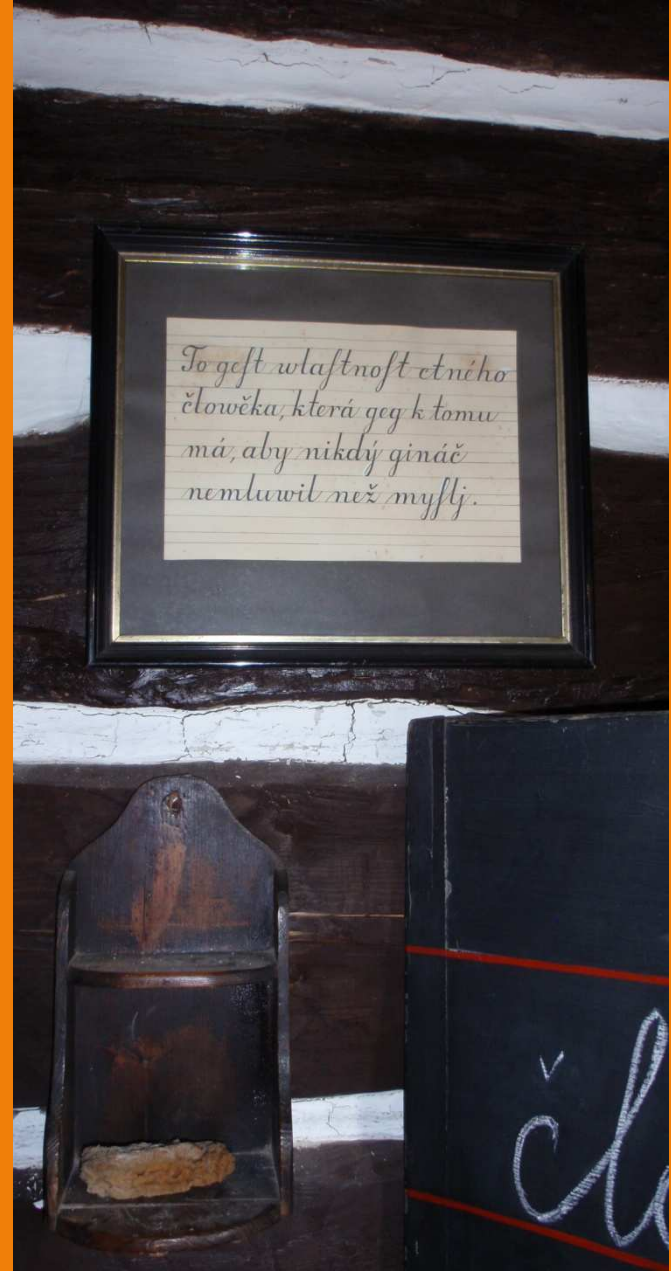 To geſt wlaſtnoſt ctného
člowěka, která geg k tomu
má, aby nikdý gináč
nemluwil než myſlj.